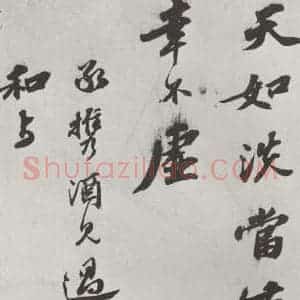 天如淡當
幸不虛
承攜酒見過
和与
Shufaziliao.COM